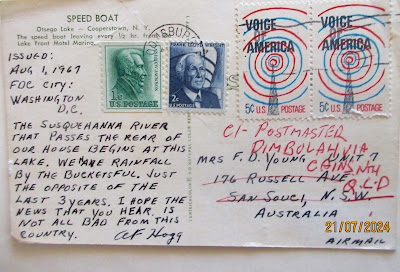 SPEED BOAT
Otsego Lake - Cooperstown, N. Y.
The speed boat leaving every ½ hr. from
Lake Front Motel Marina.
ISSUED:
AUG 1, 1967
FDC CITY:
WASHINGTON
D.C.
THE SUSQUEHANNA RIVER
THAT PASSES THE REAR OF
OUR HOUSE BEGINS AT THIS
LAKE. WE HAVE RAINFALL
BY THE BUCKETSFUL. JUST
THE OPPOSITE OF THE
LAST 3 YEARS. I HOPE THE
NEWS THAT YOU HEAR, IS
NOT ALL BAD FROM THIS
COUNTRY. AF Hogg
1c
U.S. POSTAGE
FRANK LLOYD WRIGHT
2c
U.S. POSTAGE
VOICE
OF
AMERICA
5c U.S. POSTAGE
VOICE
OF
AMERICA
5c U.S. POSTAGE
C/- POSTMASTER
DIMBULAH, VIA
CAINS, NTH
Q-L-D
MRS F. D. YOUNG UNIT 7
176 RUSSELL AVE,
SAN SOUCI, N.S.W.
AUSTRALIA
AIRMAIL
21/07/2024